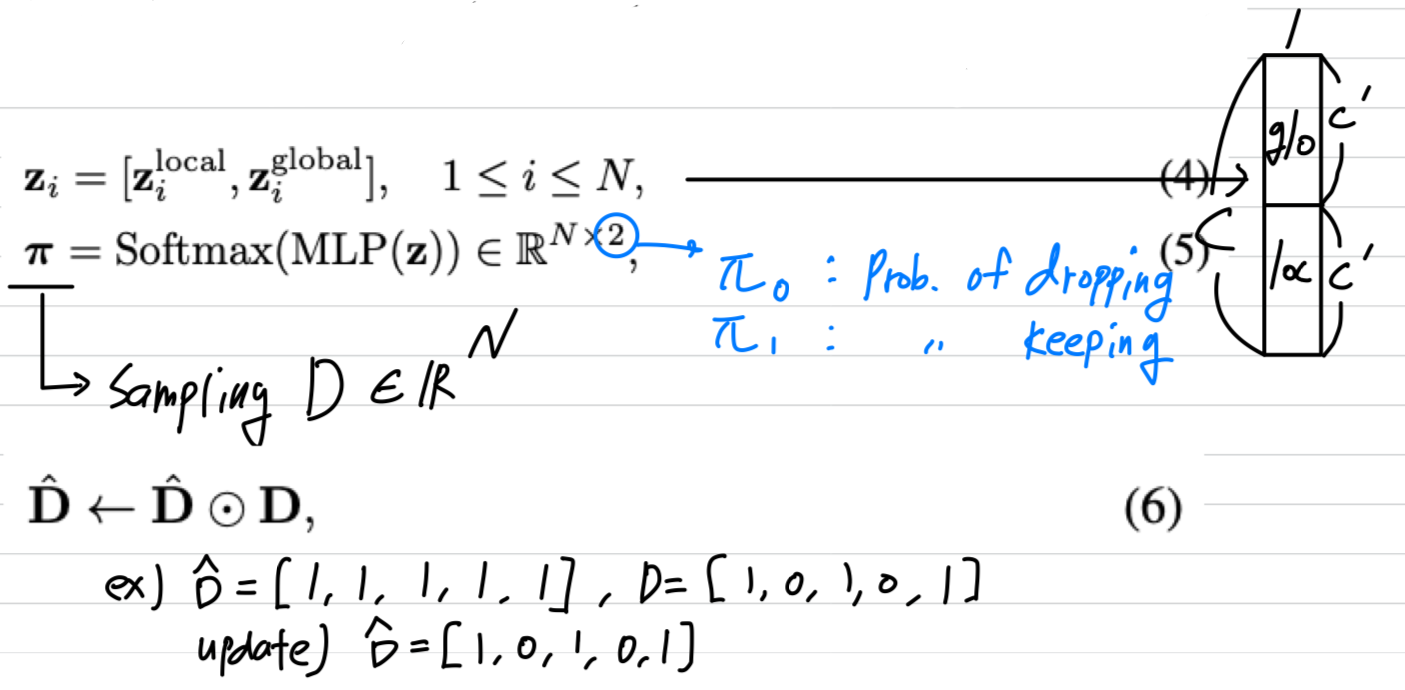 1
glo c'
z_i = [z_i^local, z_i^global], 1 ≤ i ≤ N, (4)
π = Softmax(MLP(z)) ∈ ℝ^{N×2}, (5)
loc c'
π_0 : Prob. of dropping
π_1 : 〃 keeping
Sampling D ∈ ℝ^N
D̂ ← D̂ ⊙ D, (6)
ex) D̂ = [1, 1, 1, 1, 1], D = [1, 0, 1, 0, 1]
update) D̂ = [1, 0, 1, 0, 1]